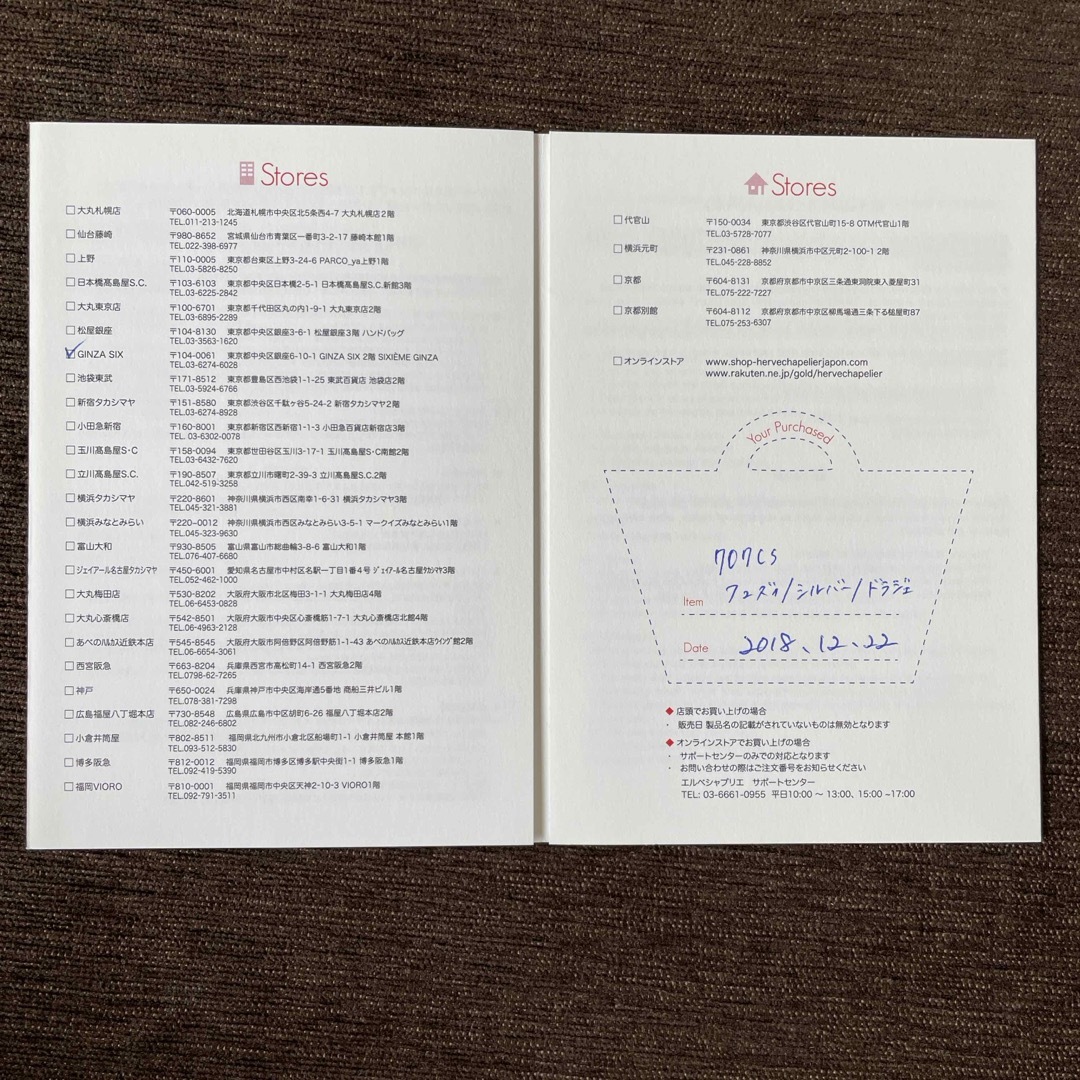 Stores
大丸札幌店 〒060-0005 北海道札幌市中央区北5条西4-7 大丸札幌店2階
TEL.011-213-1245
仙台藤崎 〒980-8652 宮城県仙台市青葉区一番町3-2-17 藤崎本館1階
TEL.022-398-6977
上野 〒110-0005 東京都台東区上野3-24-6 PARCO_ya上野1階
TEL.03-5826-8250
日本橋髙島屋S.C. 〒103-6103 東京都中央区日本橋2-5-1 日本橋髙島屋S.C.新館3階
TEL.03-6225-2842
大丸東京店 〒100-6701 東京都千代田区丸の内1-9-1 大丸東京店2階
TEL.03-6895-2289
松屋銀座 〒104-8130 東京都中央区銀座3-6-1 松屋銀座3階 ハンドバッグ
TEL.03-3563-1620
GINZA SIX 〒104-0061 東京都中央区銀座6-10-1 GINZA SIX 2階 SIXIÈME GINZA
TEL.03-6274-6028
池袋東武 〒171-8512 東京都豊島区西池袋1-1-25 東武百貨店 池袋店2階
TEL.03-5924-6766
新宿タカシマヤ 〒151-8580 東京都渋谷区千駄ヶ谷5-24-2 新宿タカシマヤ2階
TEL.03-6274-8928
小田急新宿 〒160-8001 東京都新宿区西新宿1-1-3 小田急百貨店新宿店3階
TEL. 03-6302-0078
玉川髙島屋S・C 〒158-0094 東京都世田谷区玉川3-17-1 玉川髙島屋S・C南館2階
TEL.03-6432-7620
立川髙島屋S.C. 〒190-8507 東京都立川市曙町2-39-3 立川髙島屋S.C.2階
TEL.042-519-3258
横浜タカシマヤ 〒220-8601 神奈川県横浜市西区南幸1-6-31 横浜タカシマヤ3階
TEL.045-321-3881
横浜みなとみらい 〒220-0012 神奈川県横浜市西区みなとみらい3-5-1 マークイズみなとみらい1階
TEL.045-323-9630
富山大和 〒930-8505 富山県富山市総曲輪3-8-6 富山大和1階
TEL.076-407-6680
ジェイアール名古屋タカシマヤ 〒450-6001 愛知県名古屋市中村区名駅一丁目1番4号 ジェイアール名古屋タカシマヤ3階
TEL.052-462-1000
大丸梅田店 〒530-8202 大阪府大阪市北区梅田3-1-1 大丸梅田店4階
TEL.06-6453-0828
大丸心斎橋店 〒542-8501 大阪府大阪市中央区心斎橋筋1-7-1 大丸心斎橋店北館4階
TEL.06-4963-2128
あべのハルカス近鉄本店 〒545-8545 大阪府大阪市阿倍野区阿倍野筋1-1-43 あべのハルカス近鉄本店ウイング館2階
TEL.06-6654-3061
西宮阪急 〒663-8204 兵庫県西宮市高松町14-1 西宮阪急2階
TEL.0798-62-7265
神戸 〒650-0024 兵庫県神戸市中央区海岸通5番地 商船三井ビル1階
TEL.078-381-7298
広島福屋八丁堀本店 〒730-8548 広島県広島市中区胡町6-26 福屋八丁堀本店2階
TEL.082-246-6802
小倉井筒屋 〒802-8511 福岡県北九州市小倉北区船場町1-1 小倉井筒屋 本館1階
TEL.093-512-5830
博多阪急 〒812-0012 福岡県福岡市博多区博多駅中央街1-1 博多阪急1階
TEL.092-419-5390
福岡VIORO 〒810-0001 福岡県福岡市中央区天神2-10-3 VIORO1階
TEL.092-791-3511
Stores
代官山 〒150-0034 東京都渋谷区代官山町15-8 OTM代官山1階
TEL.03-5728-7077
横浜元町 〒231-0861 神奈川県横浜市中区元町2-100-1 2階
TEL.045-228-8852
京都 〒604-8131 京都府京都市中京区三条通東洞院東入菱屋町31
TEL.075-222-7227
京都別館 〒604-8112 京都府京都市中京区柳馬場通三条下る槌屋町87
TEL.075-253-6307
オンラインストア www.shop-hervechapelierjapon.com
www.rakuten.ne.jp/gold/hervechapelier
Your Purchased
707CS
Item フュズィ/シルバー/ドラジェ
Date 2018、12、22
◆ 店頭でお買い上げの場合
・ 販売日 製品名の記載がされていないものは無効となります
◆ オンラインストアでお買い上げの場合
・ サポートセンターのみでの対応となります
・ お問い合わせの際はご注文番号をお知らせください
エルベシャプリエ サポートセンター
TEL: 03-6661-0955 平日10:00 〜 13:00、15:00 ~17:00